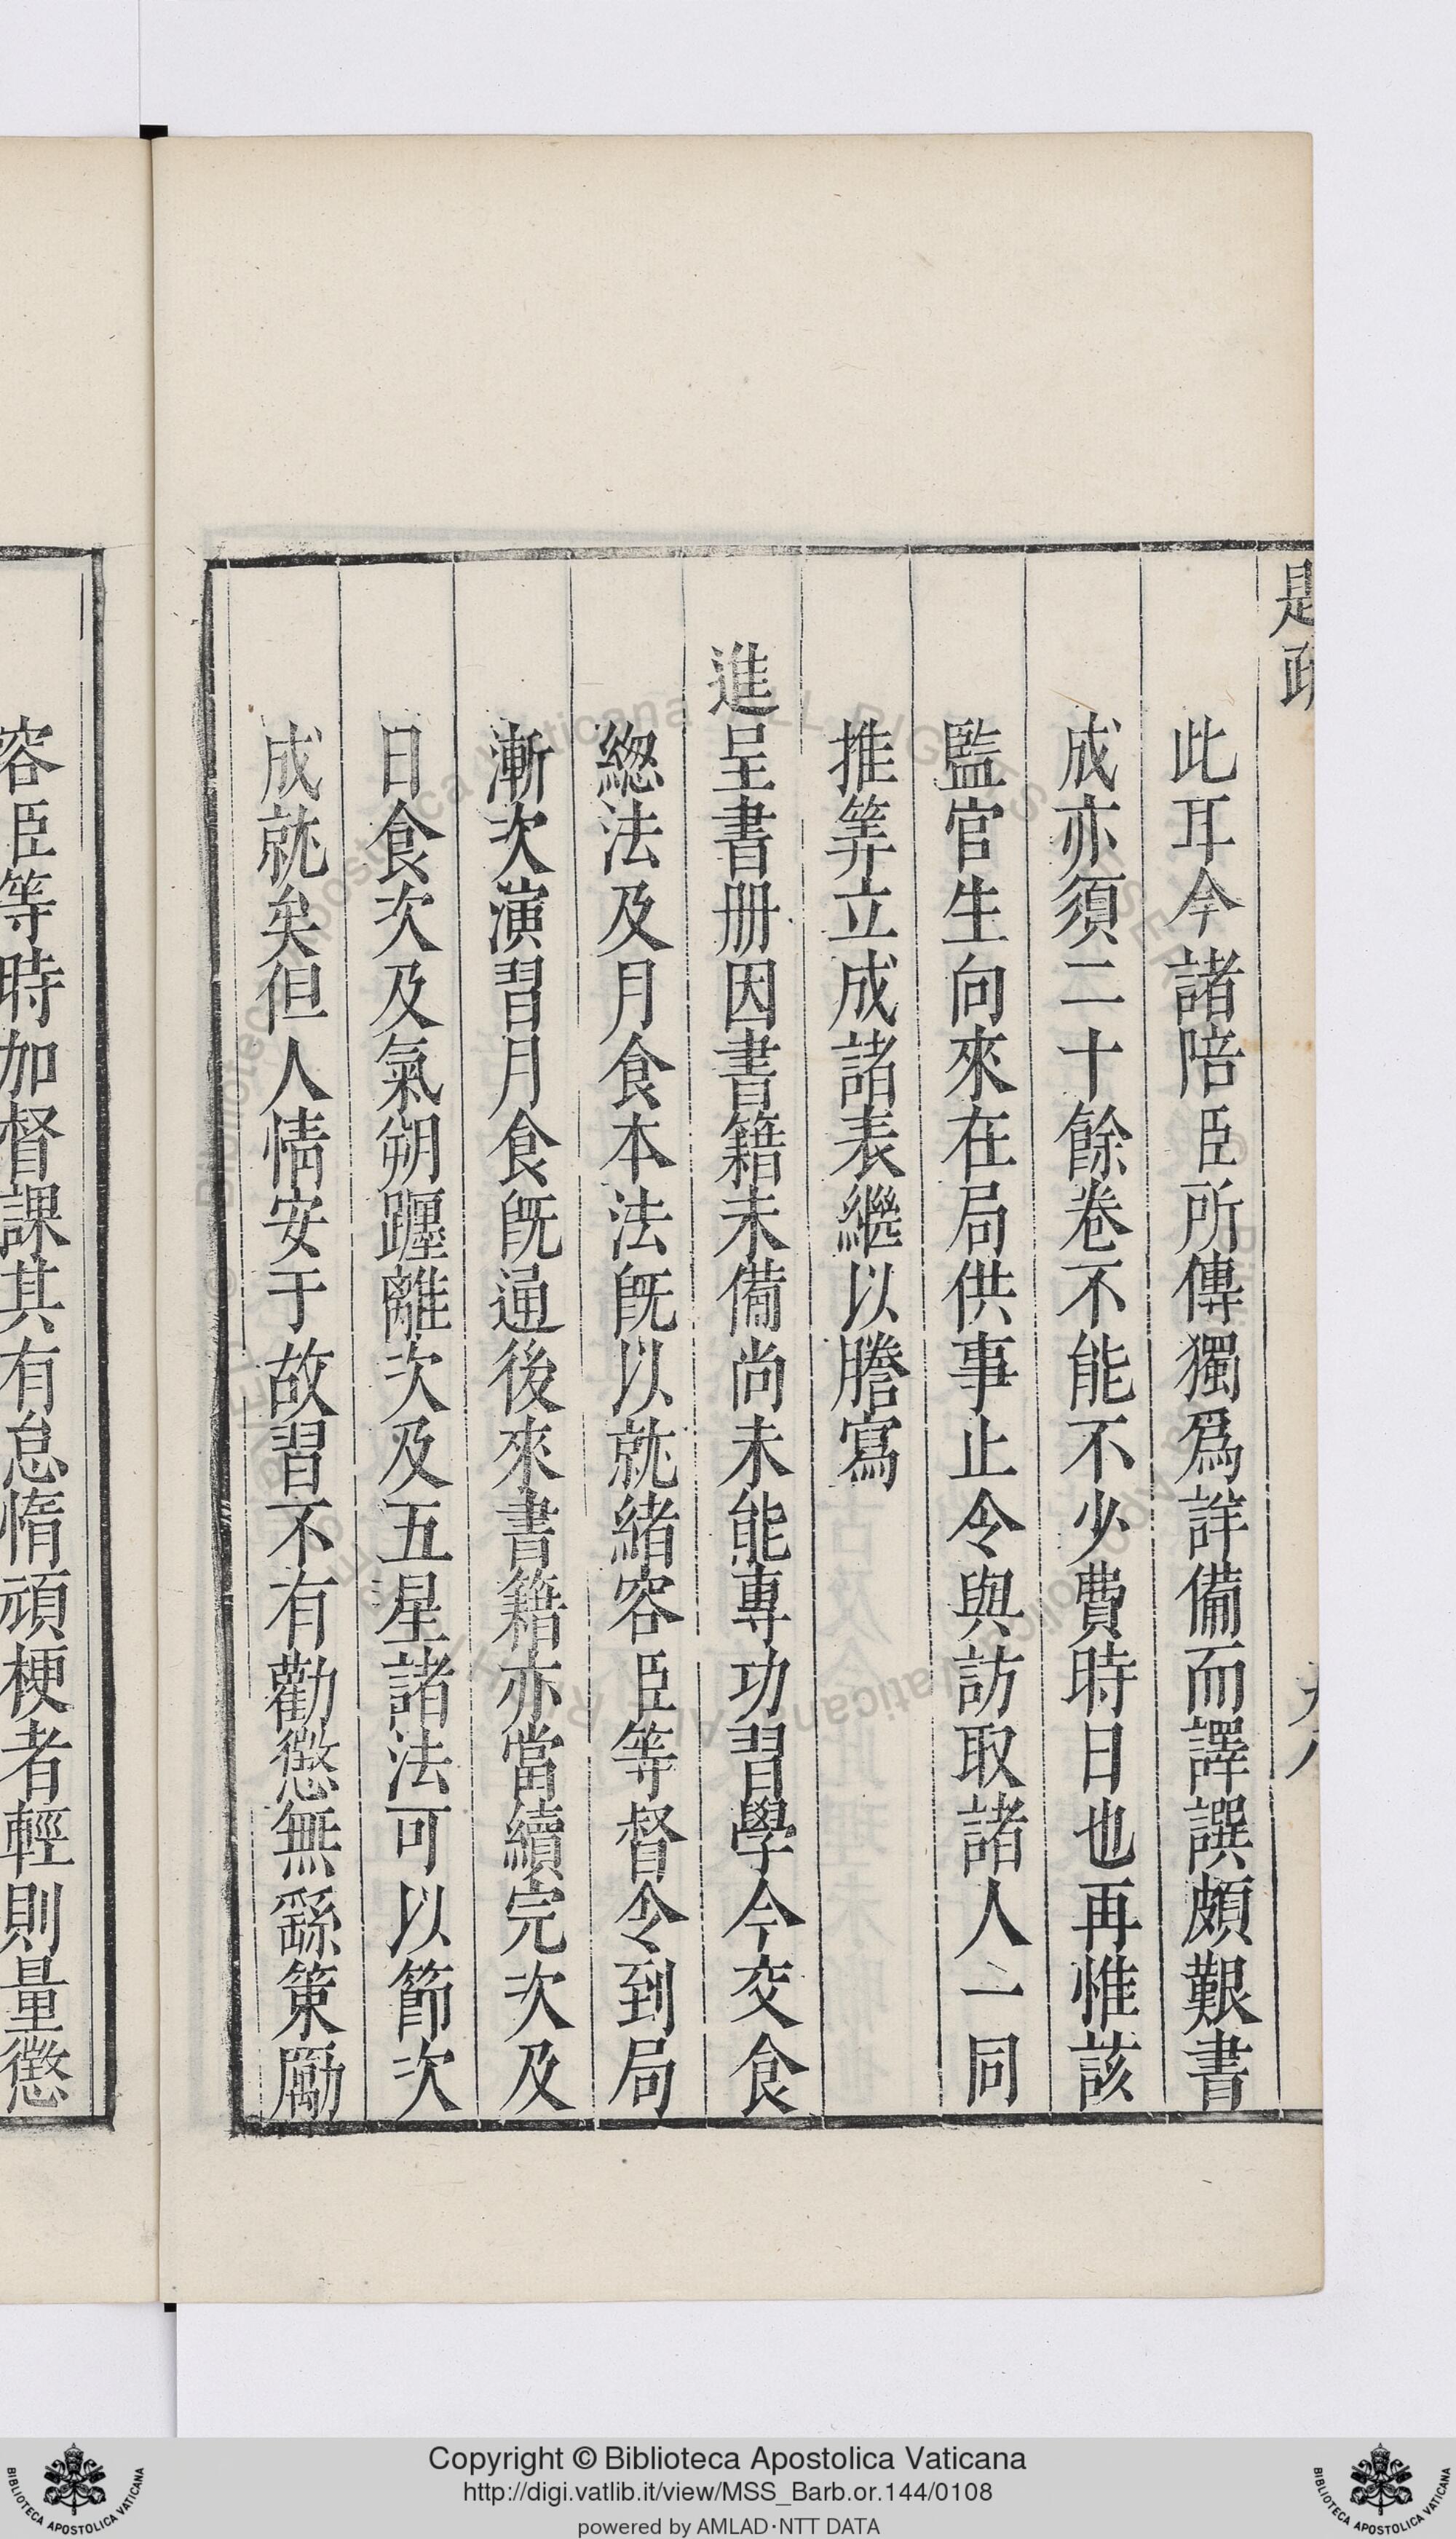 此耳今諸陪臣所傳獨爲詳備而譯譔頗艱書
成亦須二十餘卷不能不少費時日也再惟該
監官生向來在局供事止令與訪取諸人一同
推筭立成諸表繼以謄寫
進呈書册因書籍未備尚未能專功習學今交食
緫法及月食本法旣以就緒容臣等督令到局
漸次演習月食旣通後來書籍亦當續完次及
日食次及氣朔躔離次及五星諸法可以節次
成就矣但人情安于故習不有勸懲無繇策勵
容臣等時加督課其有怠惰頑梗者輕則量懲
Copyright © Biblioteca Apostolica Vaticana
http://digi.vatlib.it/view/MSS_Barb.or.144/0108
powered by AMLAD·NTT DATA
BIBLIOTECA APOSTOLICA VATICANA
BIBLIOTECA APOSTOLICA VATICANA